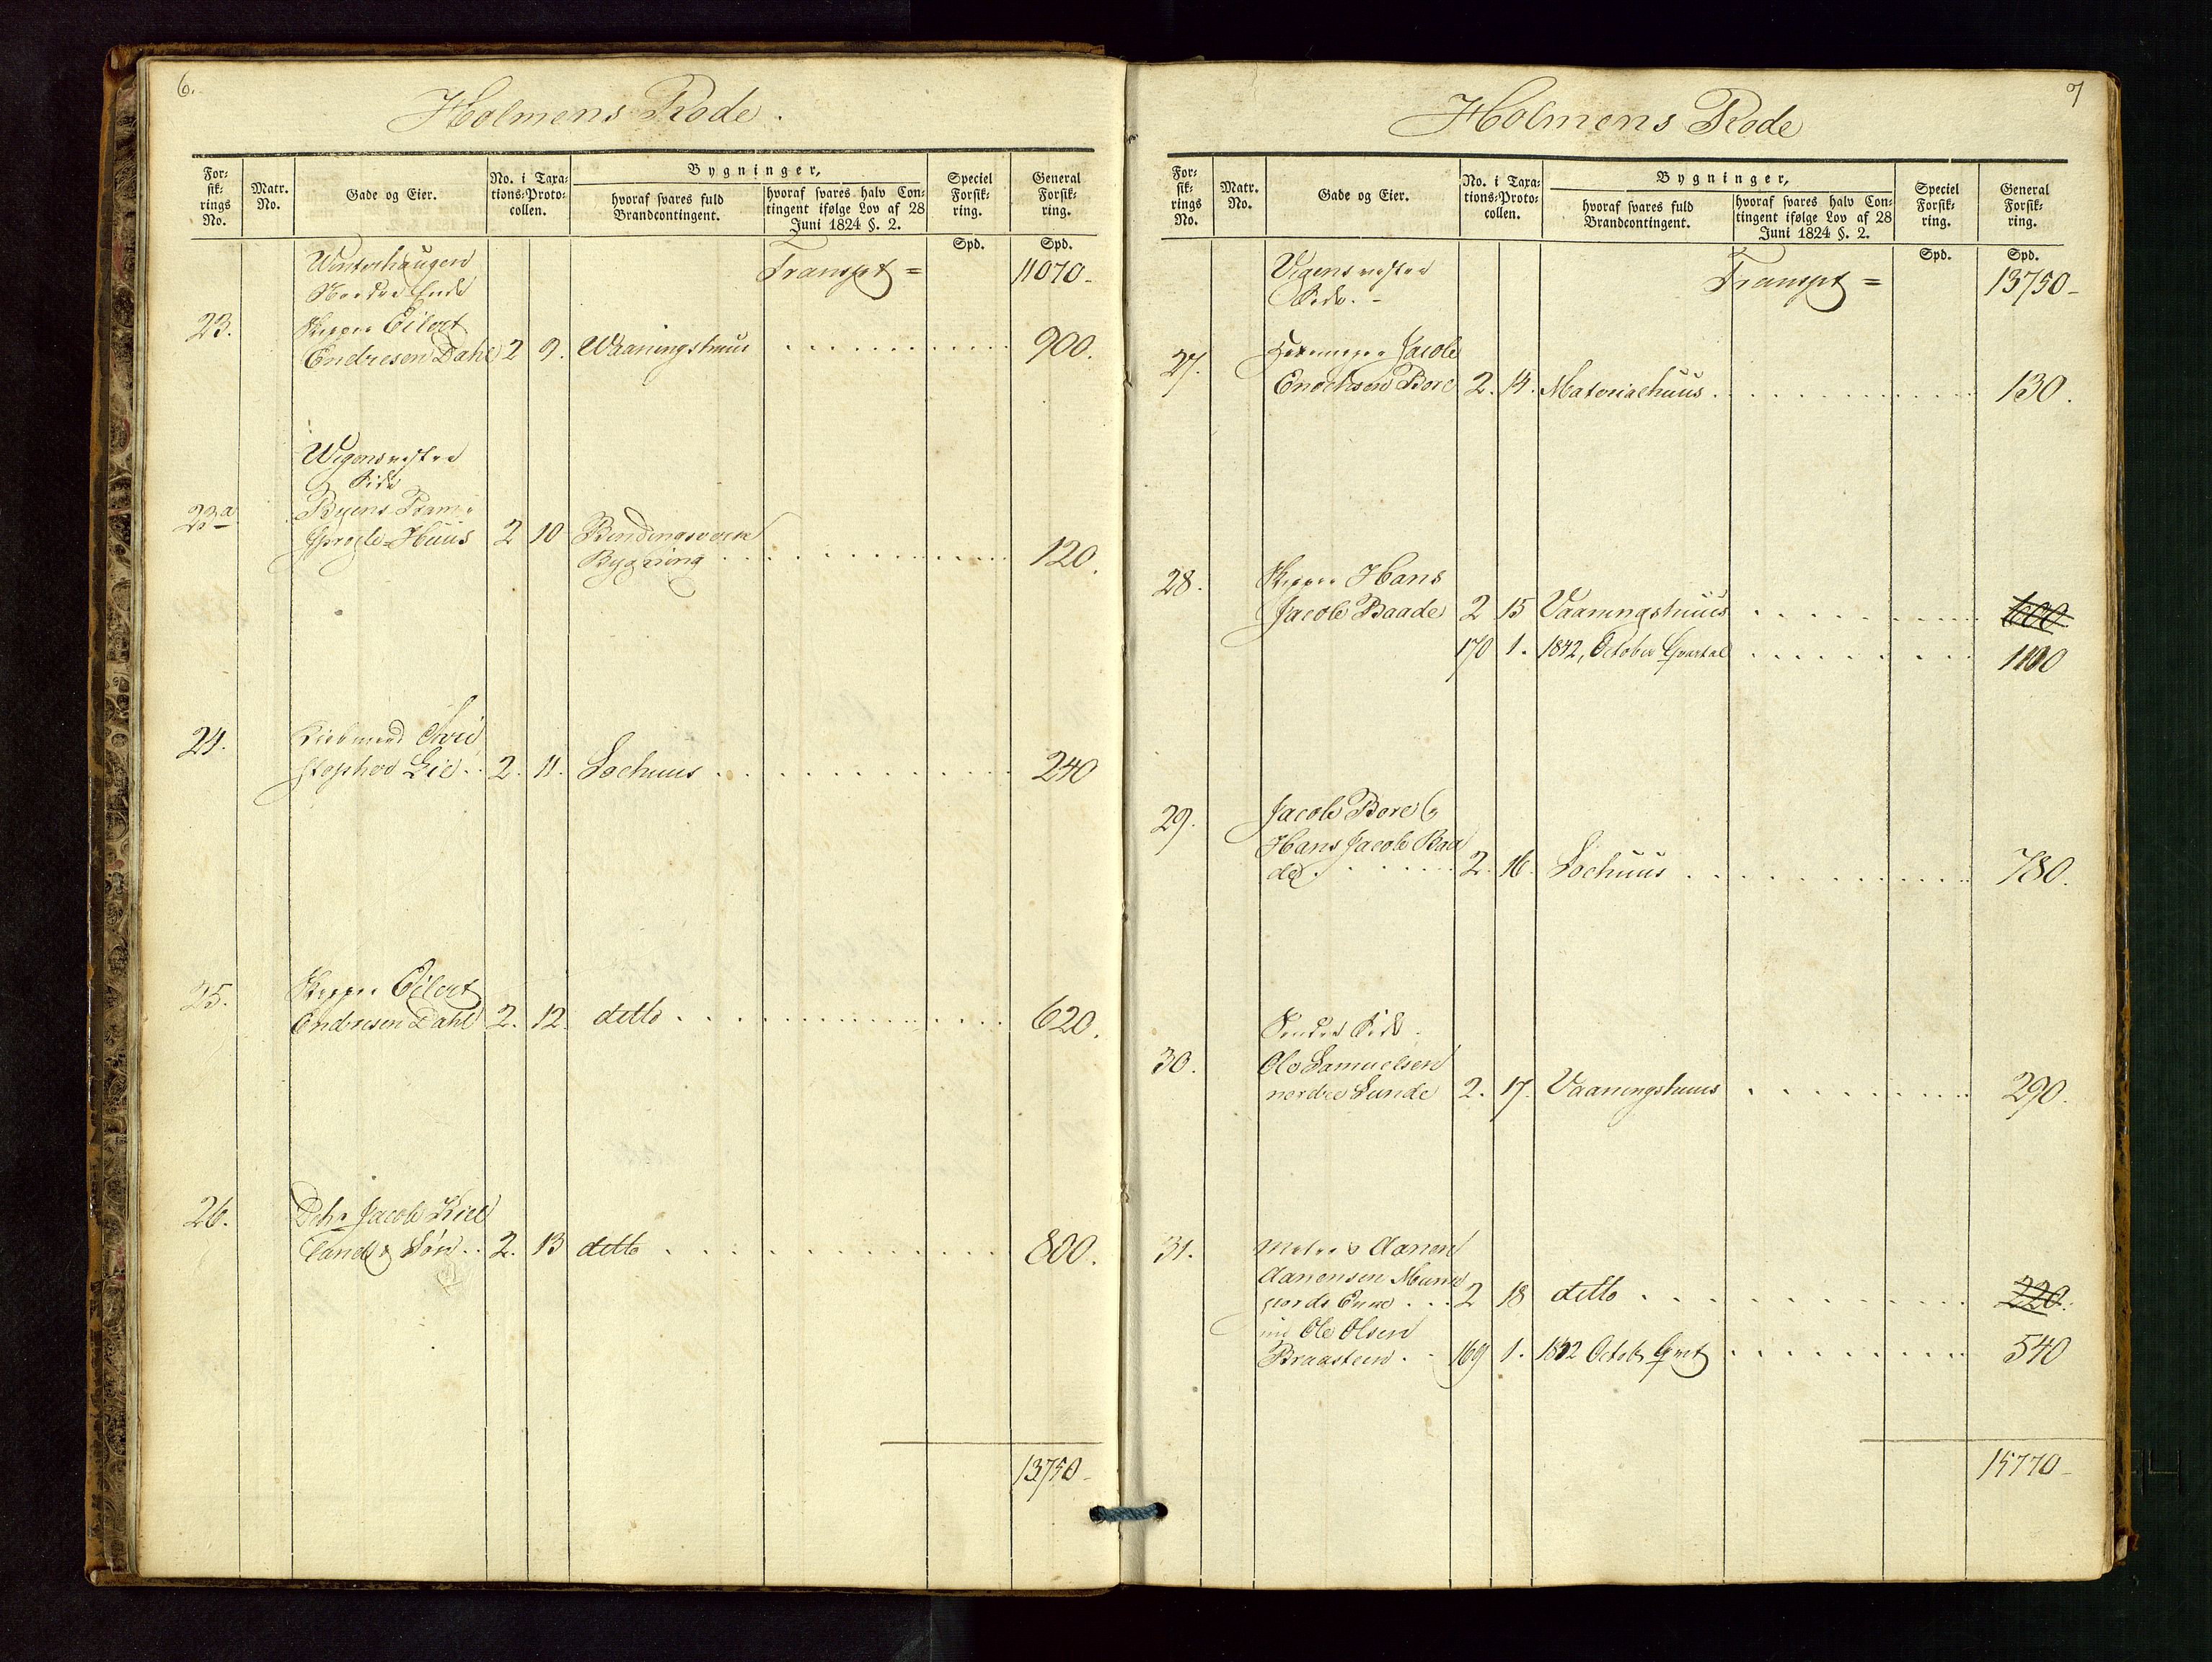 6.
Holmens Rode.
For-
sik-
rings
No.
Matr.
No.
Gade og Eier.
No. i Taxa-
tions-Proto-
collen.
Bygninger,
hvoraf svares fuld
Brandcontingent.
hvoraf svares halv Con-
tingent ifølge Lov af 28
Juni 1824 §. 2.
Speciel
Forsik-
ring.
General
Forsik-
ring.
Spd. Spd.
Winterhaugen Transpt = 11070-
Nordre Ende
23. Skipper Eilert
Endresen Dahl 2 9. Waaningshuus 900.
Wigens vestre
Side
23a Byens
Sprøite-Huus 2 10 Bindingsverks
Bygning 120.
24. Chri
stopher Lie 2. 11. Søehuus 240
25. Skipper Eilert
Endresen Dahl 2. 12. ditto 620.
26. Dhr Jacob Kiel
land & Søn 2. 13 ditto 800.
13750-
7
Holmens Rode
For-
sik-
rings
No.
Matr.
No.
Gade og Eier.
No. i Taxa-
tions-Proto-
collen.
Bygninger,
hvoraf svares fuld
Brandcontingent.
hvoraf svares halv Con-
tingent ifølge Lov af 28
Juni 1824 §. 2.
Speciel
Forsik-
ring.
General
Forsik-
ring.
Spd. Spd.
Vigens vestre Transpt = 13750-
Side.-
27. Jacob
Enochsen Bore 2. 14. Materialhuus 130.
28. Skipper Hans
Jacob Baade 2 15 Vaaningshuus 600
170 1. 1842, October Qvartal 1100
29. Jacob Bore &
Hans Jacob Baa
de 2. 16. Søehuus 780.
Søndre Side
30. Ole Samuelsen
nordre Sunde 2. 17. Vaaningshuus 290.
31. Aanen
Aanensen
Enke 2 18 ditto 220.
nu Ole Olsen
Braasteen 169 1. 1842 Octobr Qvrt 540
15770-